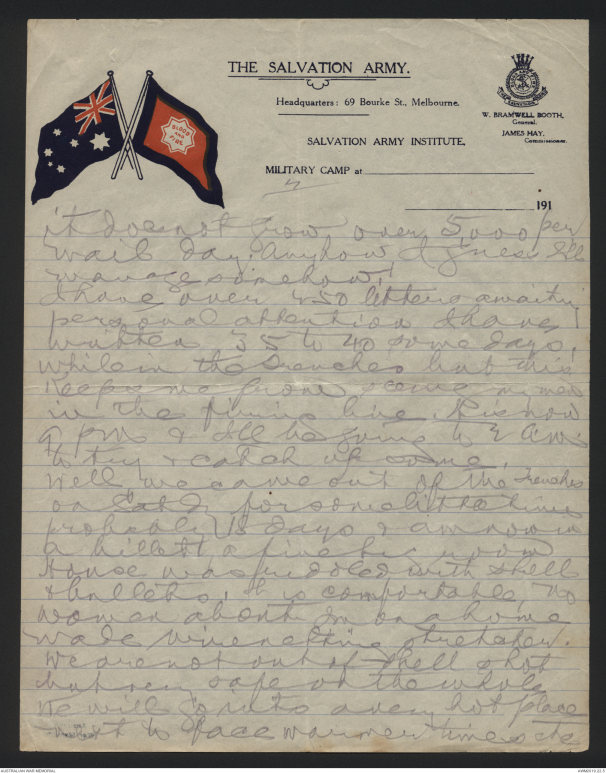 THE SALVATION ARMY.
Headquarters: 69 Bourke St., Melbourne.
W. BRAMWELL BOOTH,
General.
JAMES HAY,
Commissioner.
SALVATION ARMY INSTITUTE,
MILITARY CAMP at
191
BLOOD
AND
FIRE
it does not grow over 5,000 per
mail day. Anyhow I guess I'll
manage somehow!
I have over 250 letters awaiting
personal attention I have
written 35 to 40 some days,
while in the trenches but this
keeps me from seeing my men
in the firing line. It is now
9 pm & I'll be going to 2 a.m.
to try & catch up some.
Well we came out of the Trenches
on Satdy for some little time
probably 18 days & am now in
a billet a fine big room
House was riddled with shell
& bullets, it is comfortable, no
women about. I'm on a home
made wire netting stretcher.
We are not out of shell shot
but very safe on the whole
We will go into a very hot place
next to face warmer times etc
AUSTRALIAN WAR MEMORIAL